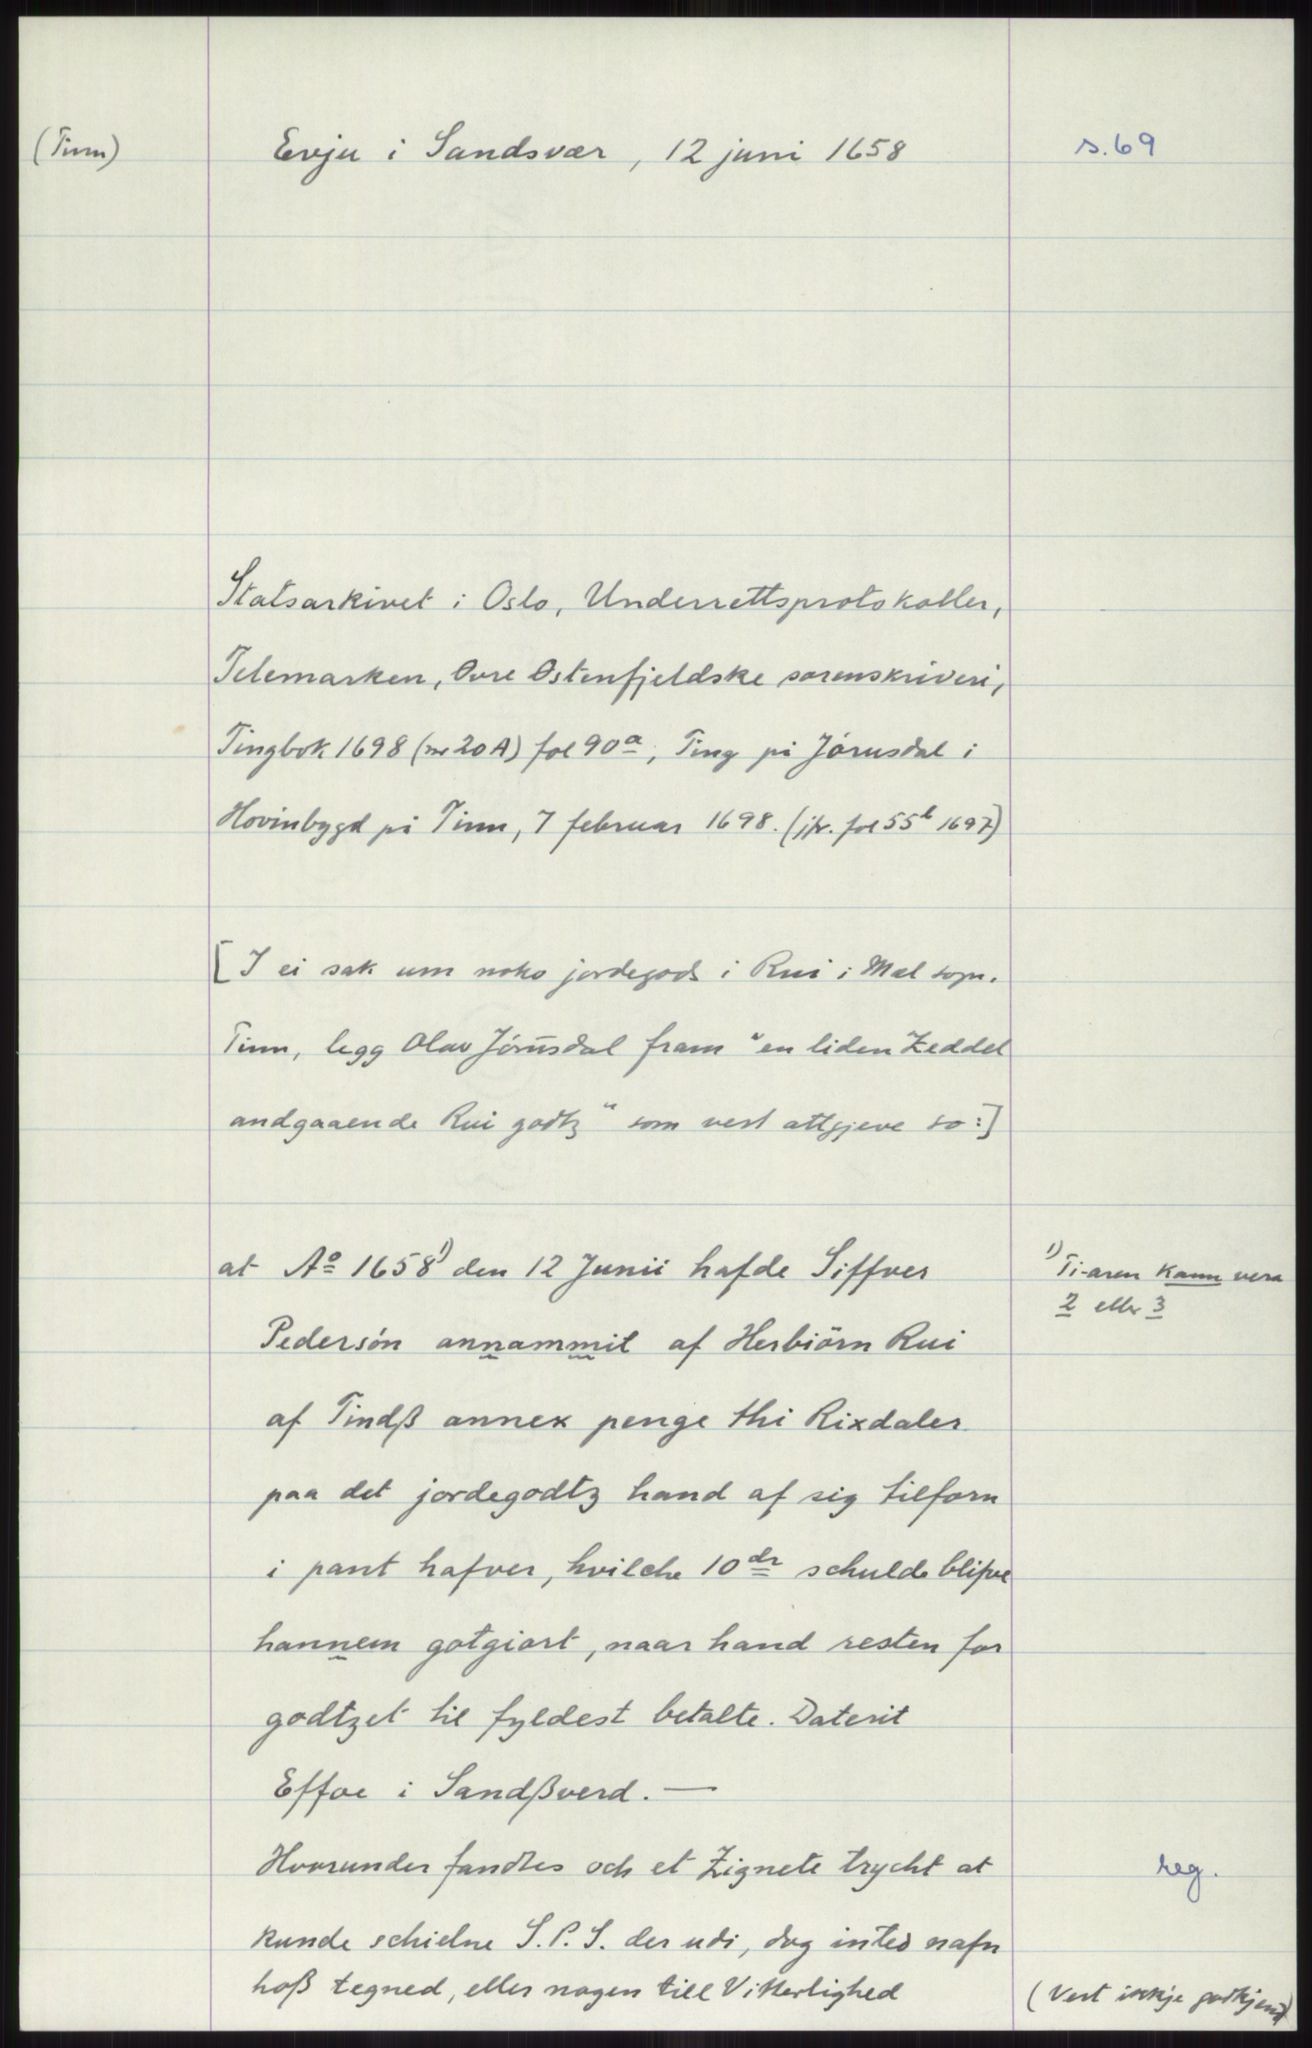 (Tinn)
Evju i Sandsvær, 12 juni 1658
s. 69
Statsarkivet i Oslo, Underrettsprotokoller,
Telemarken, Øvre Østenfjeldske sorenskriveri,
Tingbok 1698 (nr 20 A) fol 90a, Ting på Jórusdal i
Hovinbygd på Tinn, 7 februar 1698. (jfr. fol 55b 1697)
[I ei sak um noko jordegods i Rui i Mæl sogn.
Tinn, legg Olav Jórusdal fram "en liden Zeddel
andgaaende Rui godtz" som vert attgjeve so:]
at Ao 1658 1) den 12 Junii hafde Siffver
Pedersón annammit af Herbiörn Rui
af Tindß annex penge thi Rixdaler
paa det jordegodtz hand af sig tilforn
i pant hafver, hvilche 10 dr schulde blifve
hannem gotgiort, naar hand resten for
godtzet til fyldest betalte. Daterit
Effve i Sandßverd. —
Hvorunder fandtes och et Zignete trycht at
kunde schielne S.P.S. der udi, dog inted nafn
hoß tegned, eller nogen till Vitterlighed
1) Ti-aren kann vera
2 eller 3
reg.
(Vert ikkje godkjend)